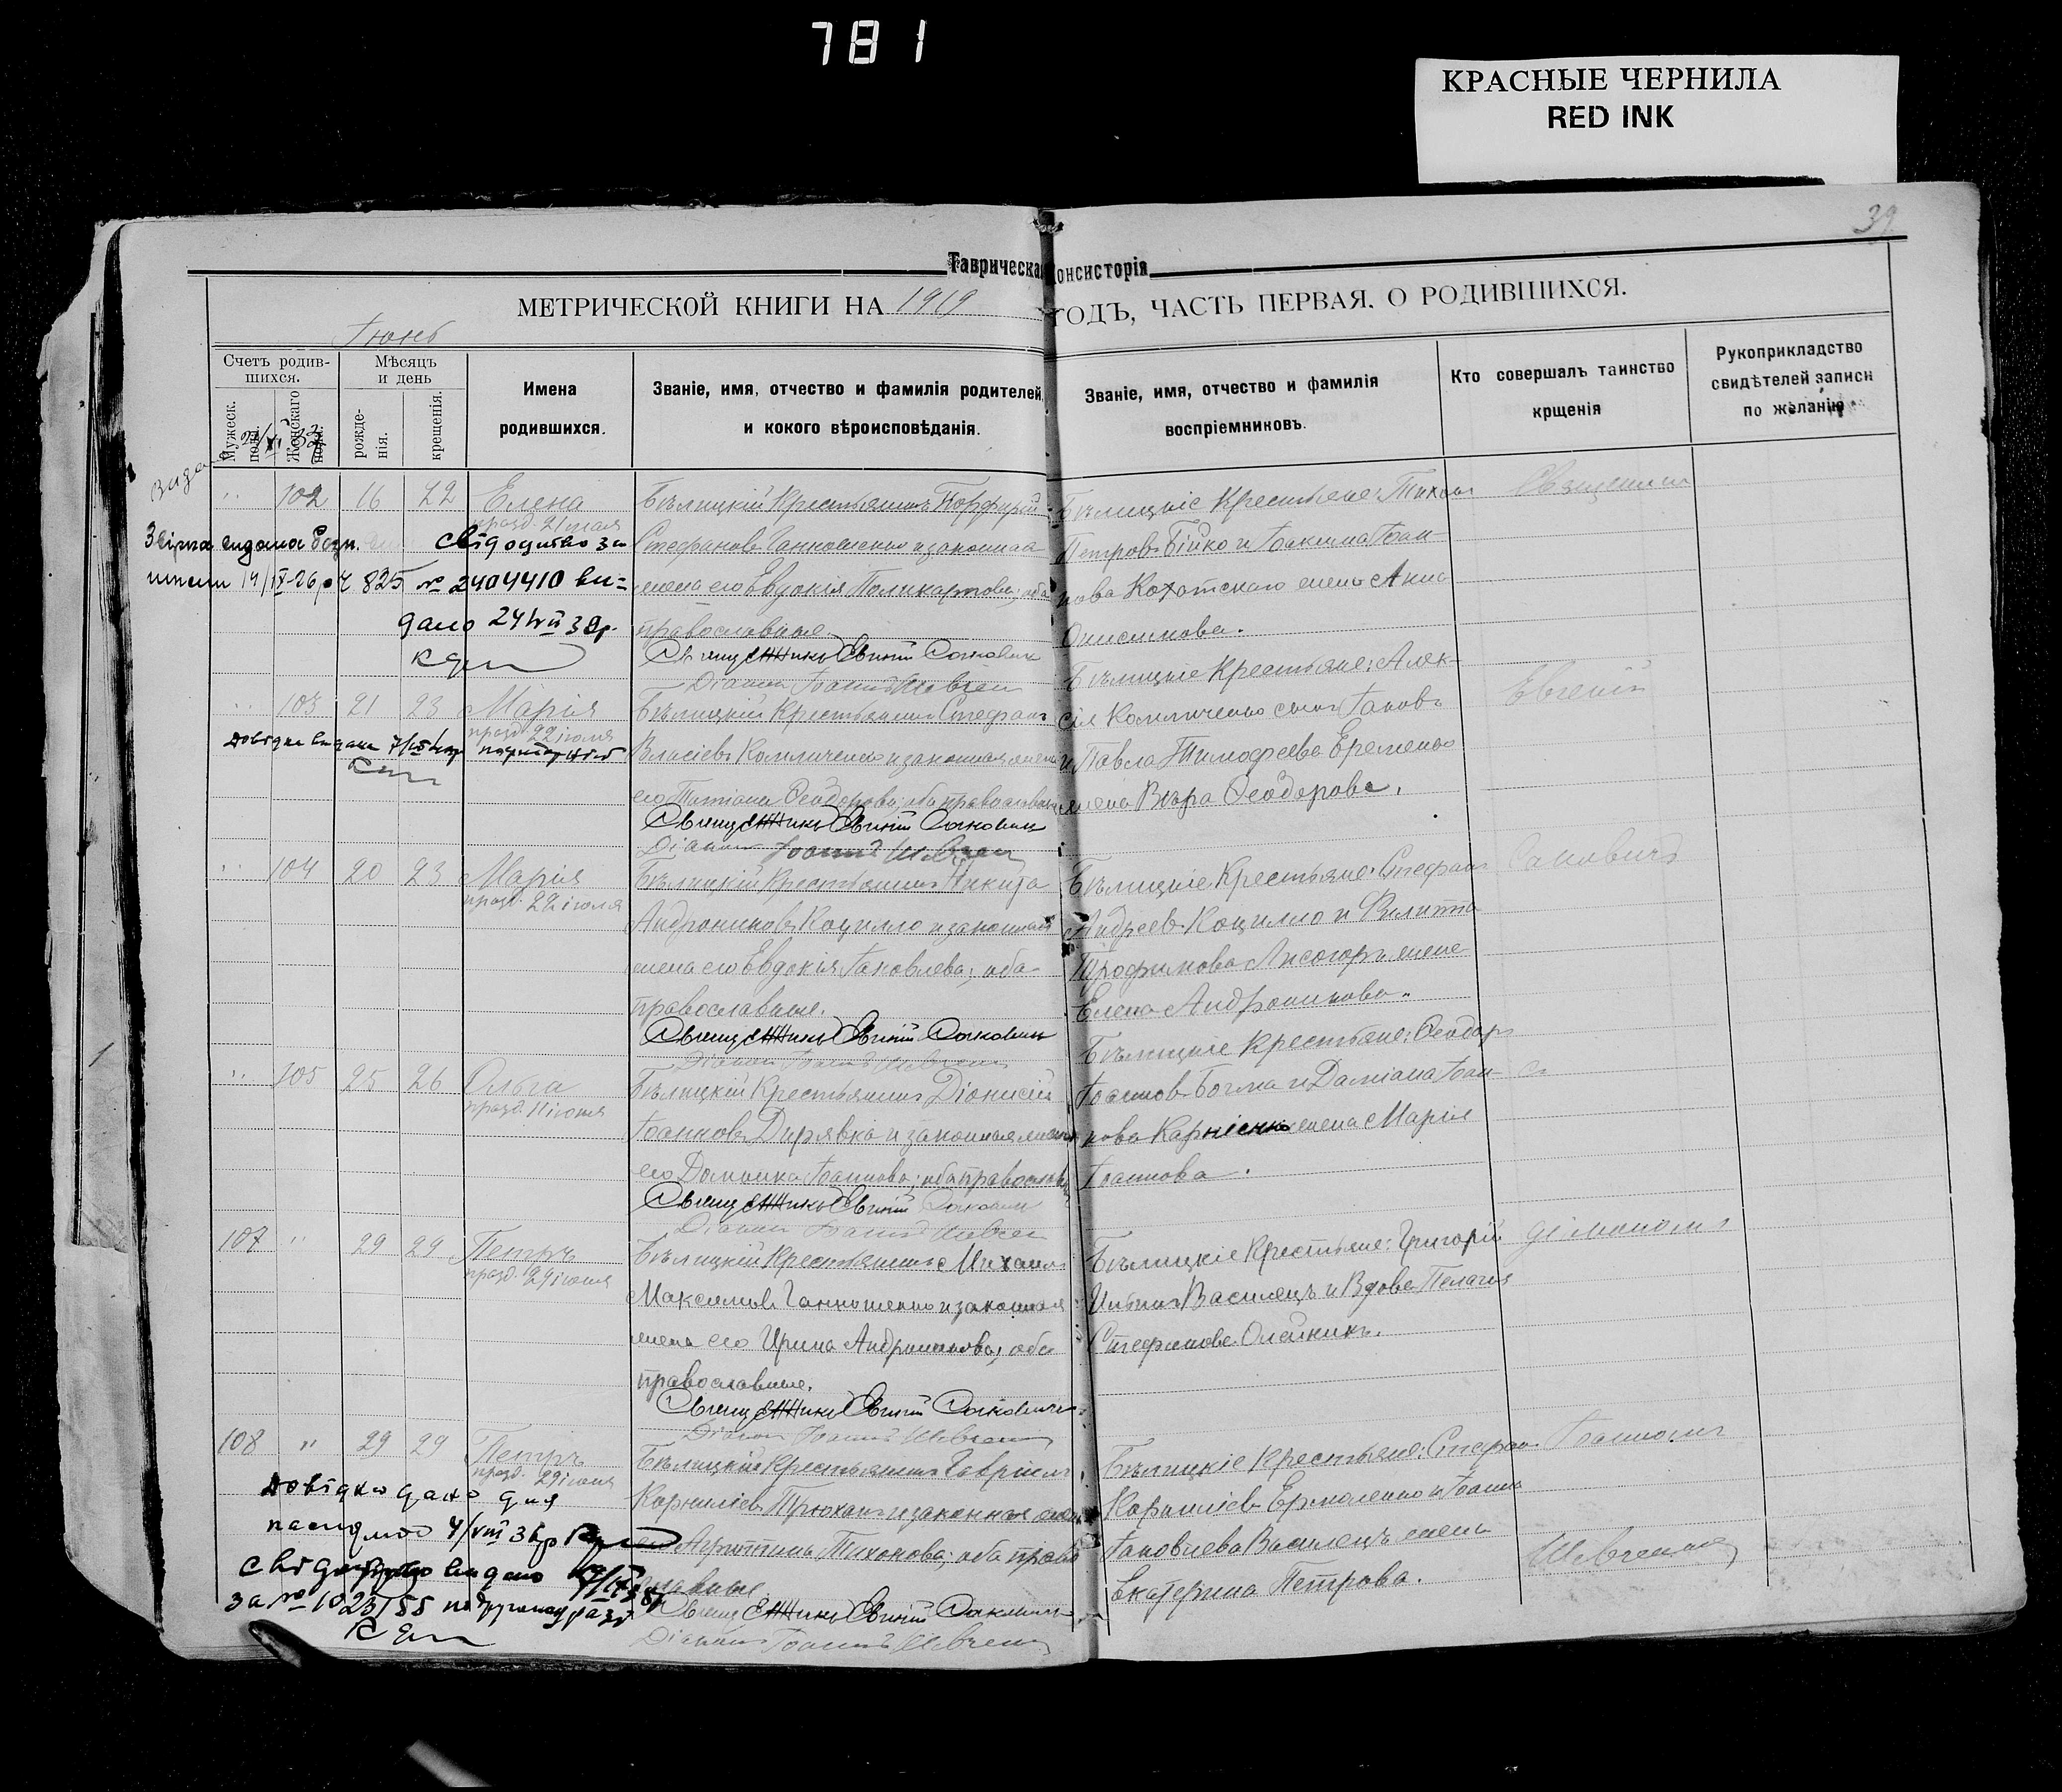 781
КРАСНЫЕ ЧЕРНИЛА
RED INK
39
Таврическая Консисторія
МЕТРИЧЕСКОЙ КНИГИ НА 1919 ГОДЪ, ЧАСТЬ ПЕРВАЯ. О РОДИВШИХСЯ.
Іюнь
Счетъ родив-
шихся.
Мужеск.
пола.
Женскаго
пола.
Мѣсяцъ
и день
рожде-
нія.
крещенія.
Имена
родившихся.
Званіе, имя, отчество и фамилія родителей,
и кокого вѣроисповѣданія.
Званіе, имя, отчество и фамилія
воспріемниковъ.
Кто совершалъ таинство
крщенія
Рукоприкладство
свидѣтелей записи
по желанію
102 16 22 Елена
празд. 21 мая
свідоцтво за
№ 2404410 ви-
дано
Бѣлицкій Крестьянинъ Порфирій
Стефановъ Ганношенко и законная
жена его Евдокія Поликарпова; оба
православные.
Священникъ Евгеній Сакович
Діаконъ Іоаннъ Шевчен
Бѣлицкіе Крестьяне: Тихонъ
Петровъ Бійко и Іоакима Іоан-
нова Кохотскаго жена Анна
Онисимова.
Священник
103 21 23 Марія
празд. 22 іюля
довідка видана
Бѣлицкій Крестьянинъ Стефанъ
Власіевъ Колличенко и законная жена
его Татіана Ѳеодорова; оба православные
Священникъ Евгеній Сакович
Діаконъ Іоаннъ Шевчен
Бѣлицкіе Крестьяне: Алек-
сія Колличенко сынъ Іаковъ
и Павла Тимофеева Еременко
жена Вѣра Ѳеодорова.
Евгеній
104 20 23 Марія
празд. 22 іюля
Бѣлицкій Крестьянинъ Никита
Андрониковъ Коцилло и законная
жена его Евдокія Іаковлева; оба
православные.
Священникъ Евгеній Сакович
Діаконъ Іоаннъ Шевчен
Бѣлицкіе Крестьяне: Стефанъ
Андреевъ Коцилло и Филиппа
Трофимова Лисогоръ жена
Елена Андроникова.
Саковичъ
105 25 26 Ольга
празд. 11 іюля
Бѣлицкій Крестьянинъ Діонисій
Іоанновъ Дирявка и законная жена
его Домника Іоаннова; оба православные
Священникъ Евгеній Сакович
Діаконъ Іоаннъ Шевчен
Бѣлицкіе Крестьяне: Ѳеодоръ
Іоанновъ Богма и Даміана Іоан-
нова Карнієнко жена Марія
Іоаннова.
с
107 29 29 Петръ
празд. 29 іюня
Бѣлицкій Крестьянинъ Михаилъ
Максимовъ Ганношенко и законная
жена его Ирина Андроникова; оба
православные.
Священникъ Евгеній Саковичъ
Діаконъ Іоаннъ Шевчен
Бѣлицкіе Крестьяне: Григорій
Ильинъ Василецъ и Вдова Пелагія
Стефанова Олейникъ.
діакономъ
108 " 29 29 Петръ
празд. 29 іюня
довідка дана для
свідоцтво видано
за № 1023155
Бѣлицкій Крестьянинъ Гавріилъ
Корниліевъ Трюханъ и законная жена
его Агриппина Тихонова; оба право
славные.
Священникъ Евгеній Сакович
Діаконъ Іоаннъ Шевчен
Бѣлицкіе Крестьяне: Стефанъ
Корниліевъ Ермоленко и Іоанна
Іаковлева Василецъ жена
Екатерина Петрова.
Іоанномъ
Шевченко